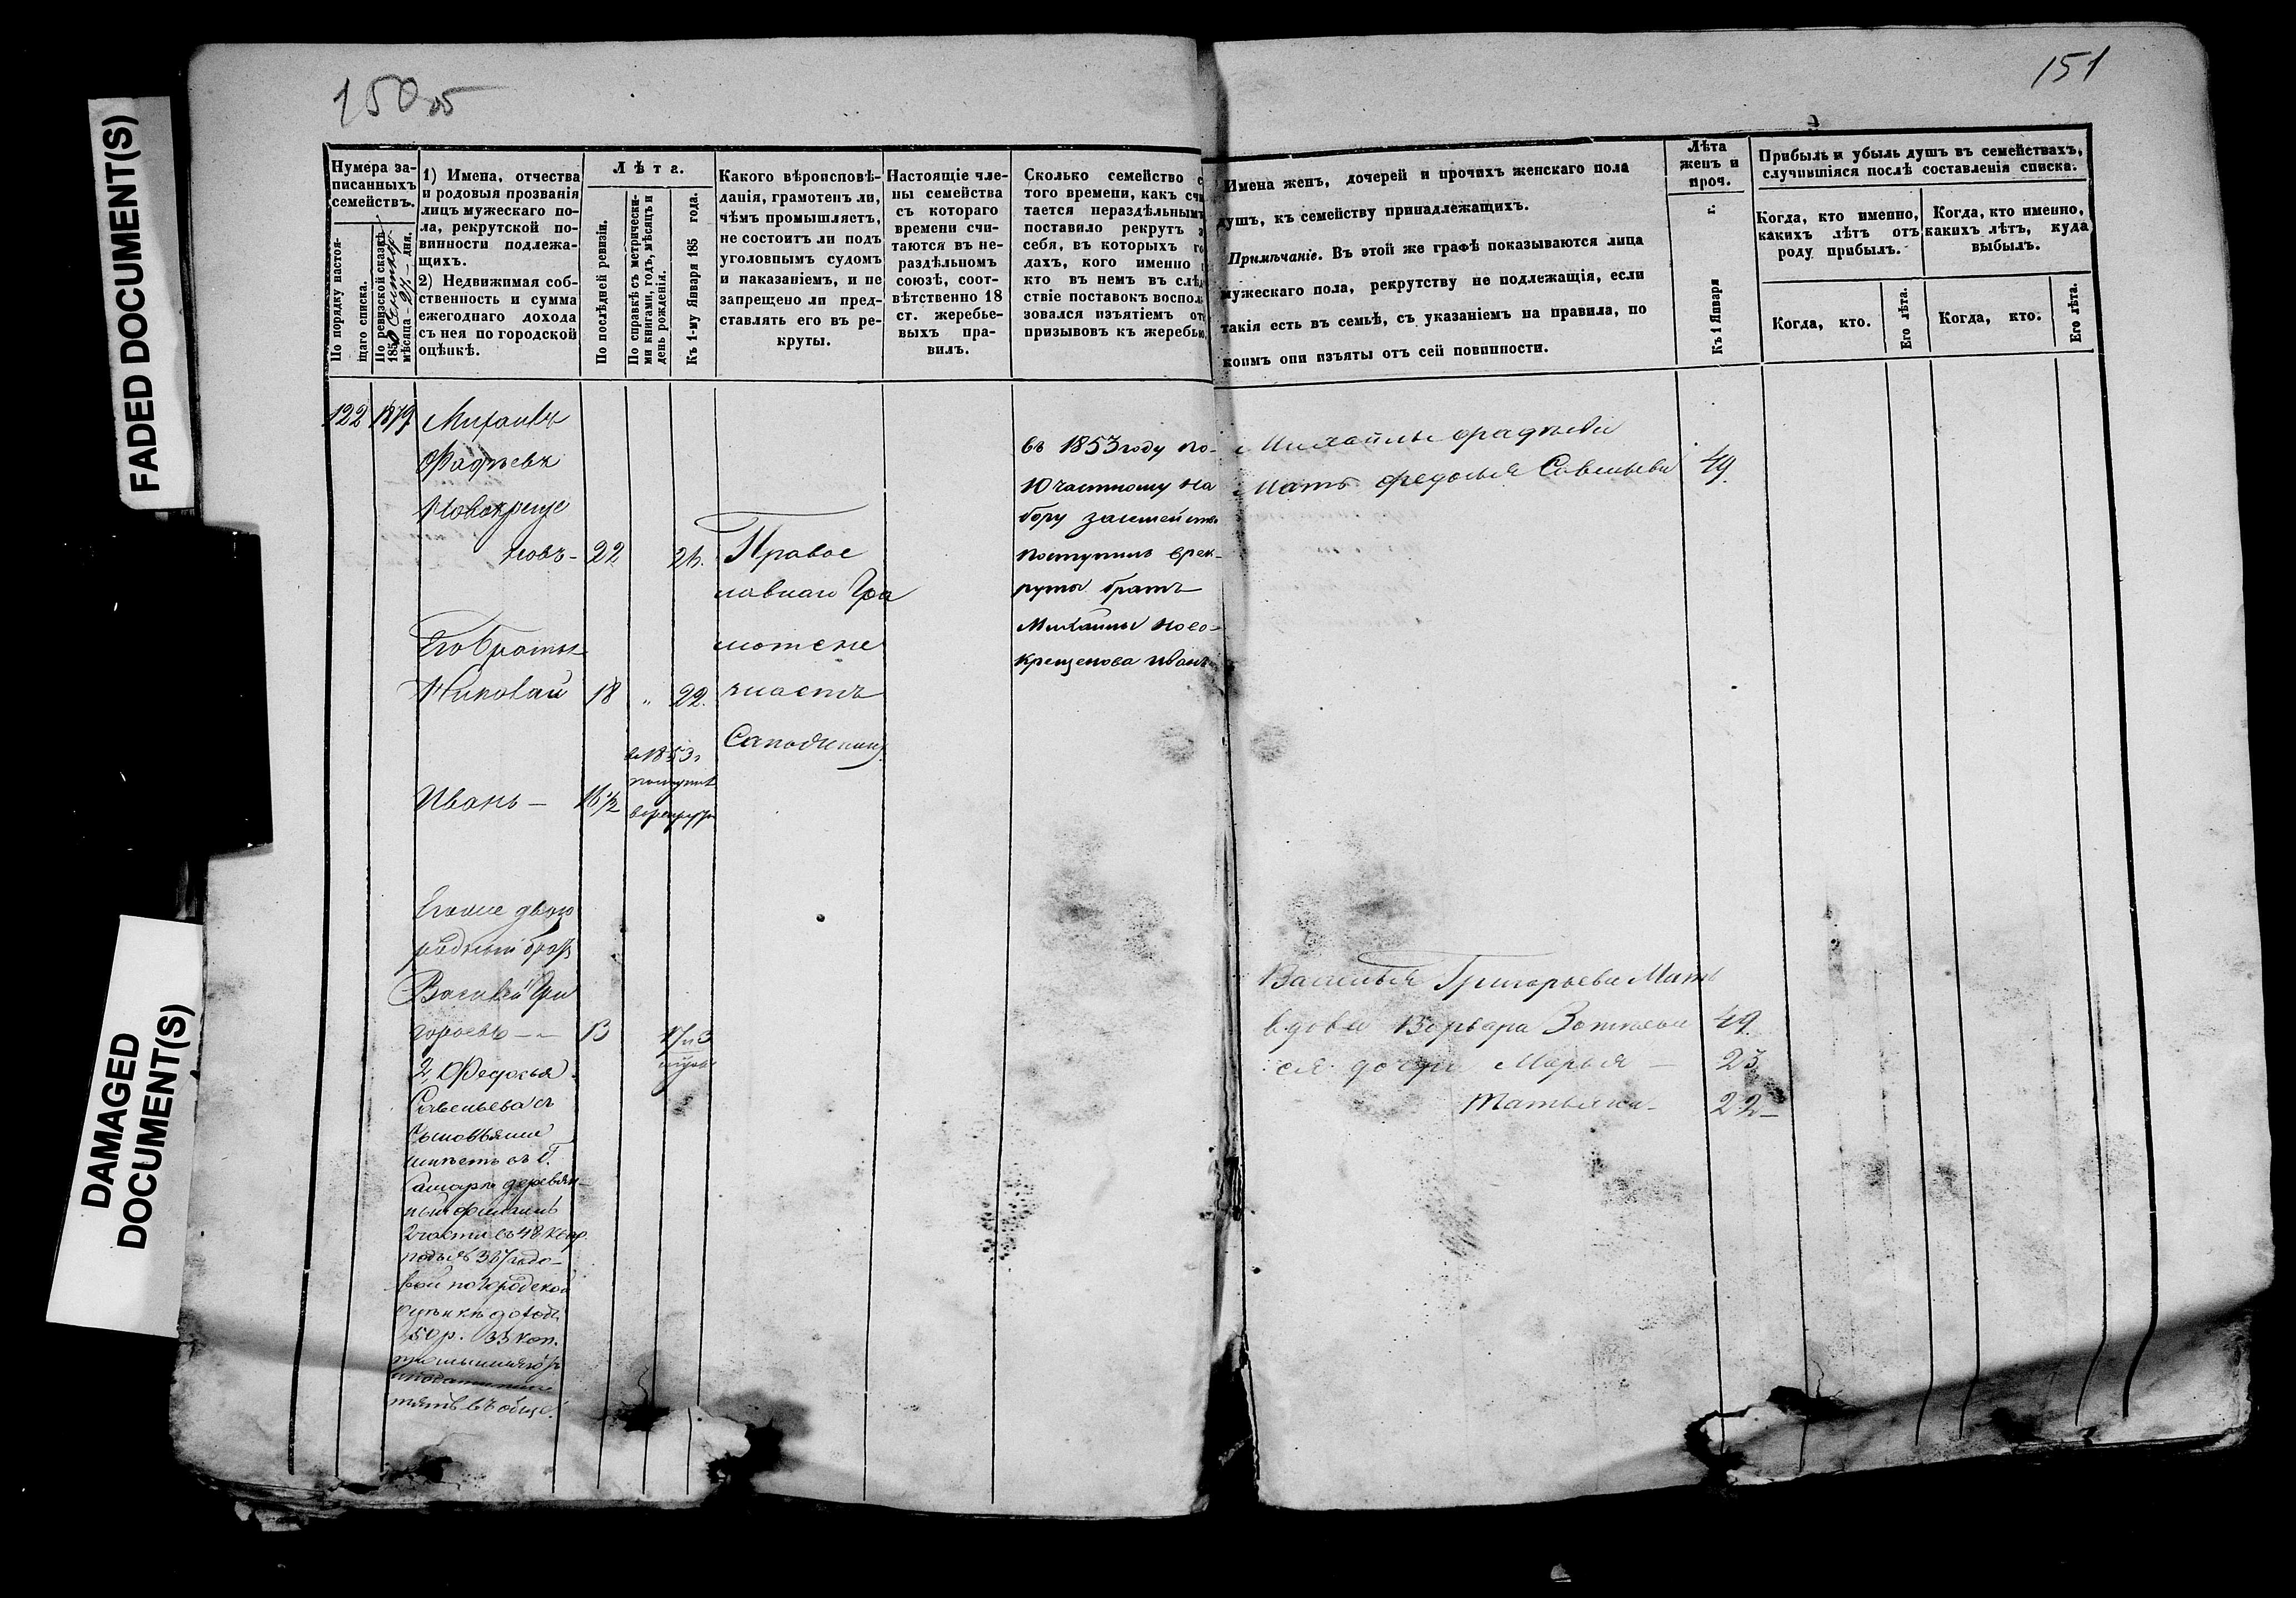 FADED DOCUMENT(S)
DAMAGED
DOCUMENT(S)
150об
Нумера за-
писанныхъ
семействъ.
По порядку настоя-
щаго списка.
По ревизской сказкѣ
185
мѣсяца 24 дня.
1) Имена, отчества
и родовыя прозванія
лицъ мужескаго по-
ла, рекрутской по-
винности подлежа-
щихъ.
2) Недвижимая соб-
ственность и сумма
ежегоднаго дохода
съ нея по городской
оцѣнкѣ.
Лѣта.
По послѣдней ревизіи.
По справкѣ съ метрически-
ми книгами, годъ, мѣсяцъ и
день рожденія.
Къ 1-му Января 185 года.
Какого вѣроисповѣ-
данія, грамотенъ ли,
чѣмъ промышляетъ,
не состоитъ ли подъ
уголовнымъ судомъ
и наказаніемъ, и не
запрещено ли пред-
ставлять его въ ре-
круты.
Настоящіе чле-
ны семейства
съ котораго
времени счи-
таются въ не-
раздѣльномъ
союзѣ, соот-
вѣтственно 18
ст. жеребье-
выхъ пра-
вилъ.
Сколько семейство с
того времени, какъ счи
тается нераздѣльнымъ
поставило рекрутъ з
себя, въ которыхъ го
дахъ, кого именно
кто въ немъ въ слѣд
ствіе поставокъ восполь
зовался изъятіемъ отъ
призывовъ къ жеребью
122 1879 Михаилъ
Фадѣевъ
Новокреще
новъ - 22 26. Правос
лавнаго Гра
мотене
Его братья
Николай 18 " 22. знаетъ
Иванъ - 16 1/2
в 1853 г
поступилъ
врекруты
въ 1853 году по
10 частному на
бору засемейство
поступилъ врек-
руты братъ
Михаилы Ново-
крещенова Иванъ
двою
родный братъ
Василей Гри
горьевъ - 13 17 и 3
2, Федосья
Савельева съ
Сыновьями
имѣетъ въ г.
Самарѣ деревян-
ный
2 части въ 48 квар
годо-
вой погородской
оцѣнкѣ доходъ
50 р. 33 коп.
151
Имена женъ, дочерей и прочихъ женскаго пола
душъ, къ семейству принадлежащихъ.
Примѣчаніе. Въ этой же графѣ показываются лица
мужескаго пола, рекрутству не подлежащія, если
такія есть въ семьѣ, съ указаніемъ на правила, по
коимъ они изъяты отъ сей повинности.
Лѣта
женъ и
проч.
Къ 1 Января г.
Прибыль и убыль душъ въ семействахъ,
случившіяся послѣ составленія списка.
Когда, кто именно,
какихъ лѣтъ отъ
роду прибылъ.
Когда, кто именно,
какихъ лѣтъ, куда
выбылъ.
Когда, кто.
Его лѣта.
Когда, кто.
Его лѣта.
Михайлы Фадѣева
Мать Федосья Савельева 49.
Василья Григорьева Мать
вдова Варвара 49.
ея дочери Марья - 23
Татьяна - 22 -